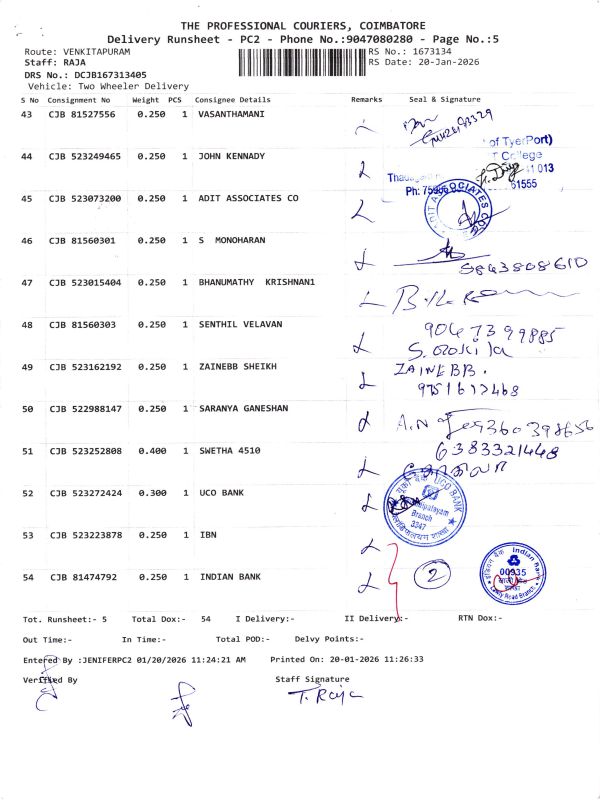 THE PROFESSIONAL COURIERS, COIMBATORE
Delivery Runsheet - PC2 - Phone No.:9047080280 - Page No.:5
Route: VENKITAPURAM RS No.: 1673134
Staff: RAJA RS Date: 20-Jan-2026
DRS No.: DCJB167313405
Vehicle: Two Wheeler Delivery
S No Consignment No Weight PCS Consignee Details Remarks Seal & Signature
43 CJB 81527556 0.250 1 VASANTHAMANI
of TyerPort)
College
44 CJB 523249465 0.250 1 JOHN KENNADY
Ph: 61555
45 CJB 523073200 0.250 1 ADIT ASSOCIATES CO
ADIT ASSOCIATES
46 CJB 81560301 0.250 1 S MONOHARAN
9843808610
47 CJB 523015404 0.250 1 BHANUMATHY KRISHNAN1
48 CJB 81560303 0.250 1 SENTHIL VELAVAN
9047399885
S. Gokila
49 CJB 523162192 0.250 1 ZAINEBB SHEIKH
ZAINEBB.
9751617468
50 CJB 522988147 0.250 1 SARANYA GANESHAN
A.N 9360398656
51 CJB 523252808 0.400 1 SWETHA 4510
6383321448
கோகலா
52 CJB 523272424 0.300 1 UCO BANK
UCO BANK
Branch
3347
53 CJB 523223878 0.250 1 IBN
54 CJB 81474792 0.250 1 INDIAN BANK
2
Indian Bank
00935
Road Branch
Tot. Runsheet:- 5 Total Dox:- 54 I Delivery:- II Delivery:- RTN Dox:-
Out Time:- In Time:- Total POD:- Delvy Points:-
Entered By :JENIFERPC2 01/20/2026 11:24:21 AM Printed On: 20-01-2026 11:26:33
Verified By Staff Signature
T. Raja